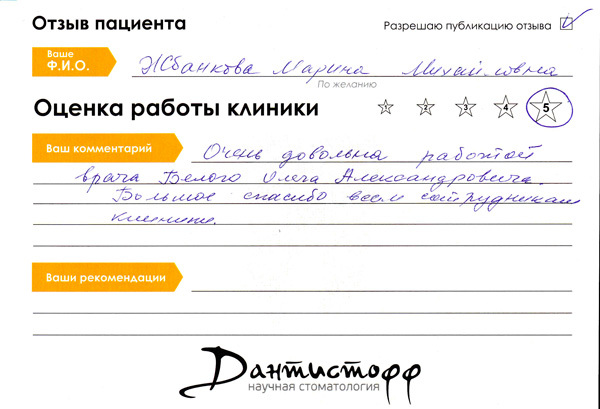 Отзыв пациента
Разрешаю публикацию отзыва
Ваше
Ф.И.О.
Жбанкова Марина Михайловна
По желанию
Оценка работы клиники
1 2 3 4 5
Ваш комментарий
Очень довольна работой
врача Белого Олега Александровича.
Большое спасибо всем сотрудникам
клиники.
Ваши рекомендации
Дантистофф
научная стоматология